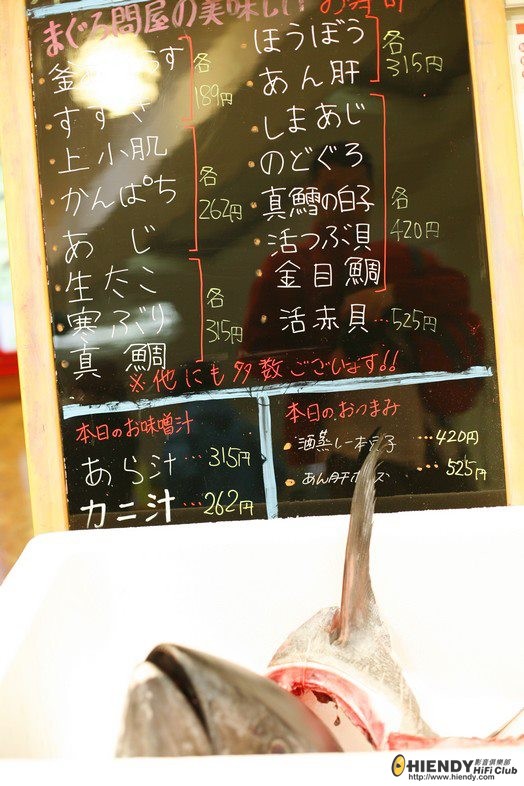 まぐろ問屋の美味しいお寿司
釜
すずき
上小肌
かんぱち
あじ
生たこ
寒ぶり
真鯛
各
189円
各
262円
各
315円
ほうぼう
あん肝
しまあじ
のどぐろ
真鱈の白子
活つぶ貝
金目鯛
活赤貝…525円
各
315円
各
420円
※他にも多数ございます!!
本日のお味噌汁
あら汁…315円
カニ汁…262円
本日のおつまみ
酒蒸し一本穴子…420円
あん肝ポン…525円
HIENDY 影音俱樂部
HiFi Club
http://www.hiendy.com